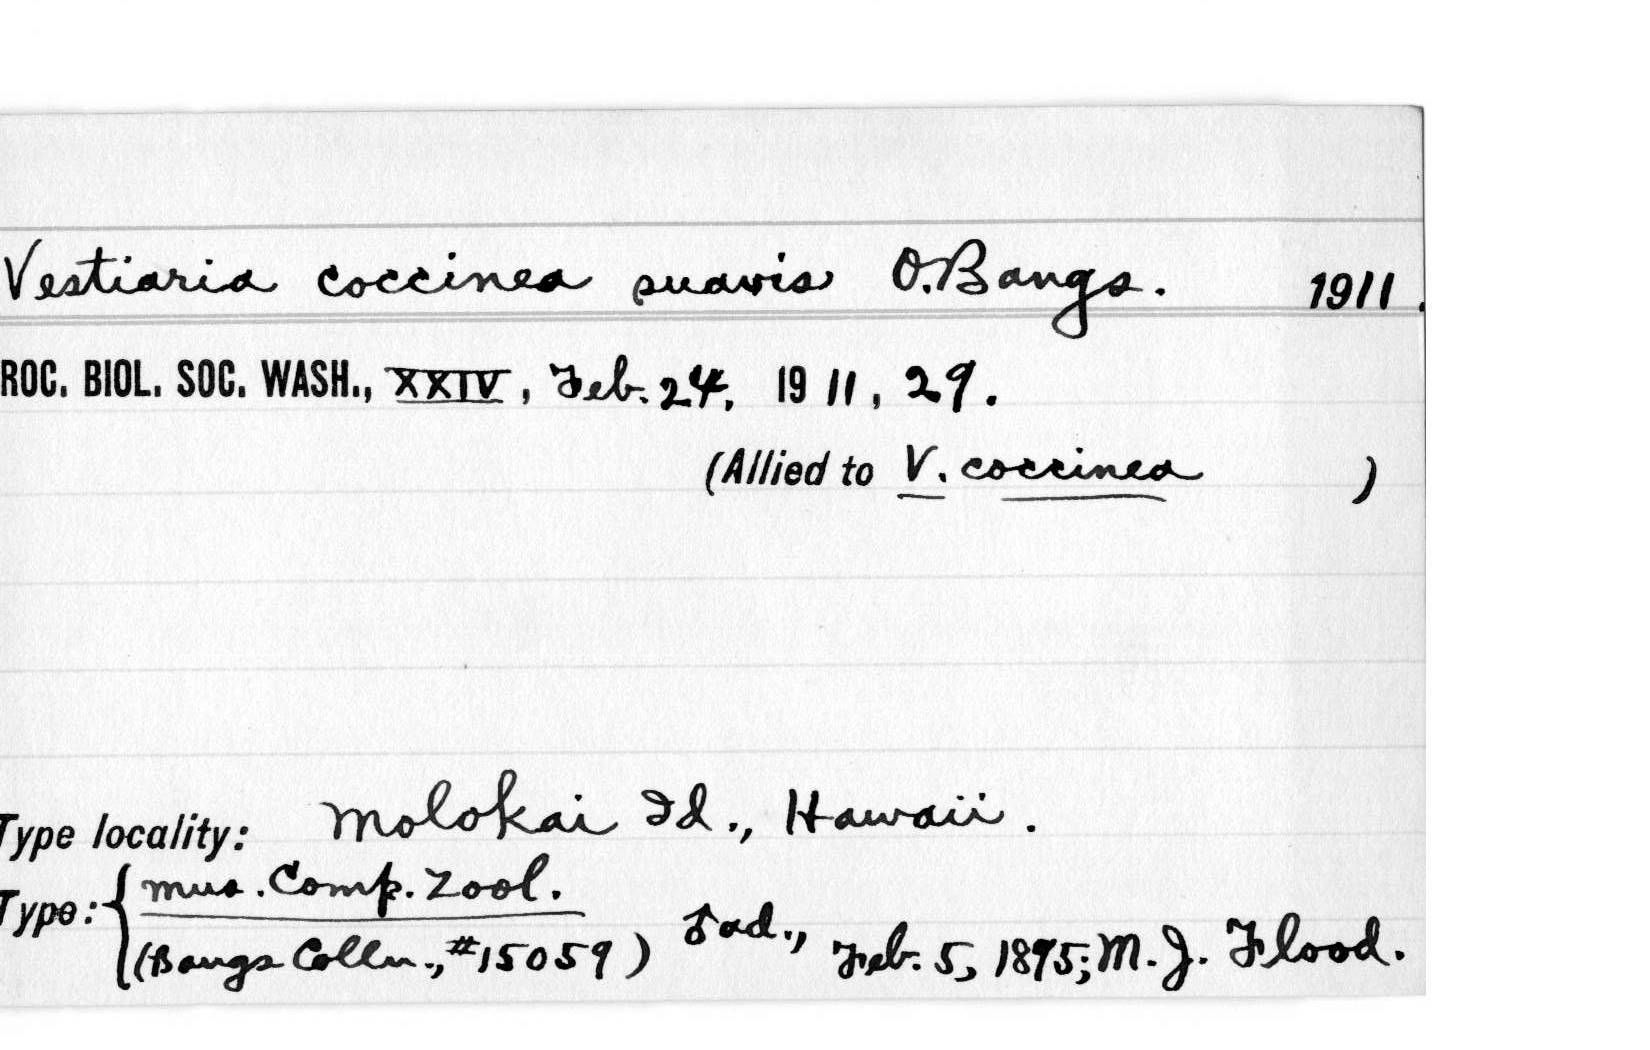 Vestiaria coccinea suavis O. Bangs. 1911.
ROC. BIOL. SOC. WASH., XXIV, Feb. 24, 1911, 29.
(Allied to V. coccinea )
Type locality: Molokai Id., Hawaii.
Type: { Mus. Comp. Zool.
(Bangs Colln., #15059) ♂ ad., Feb. 5, 1895; M. J. Flood.